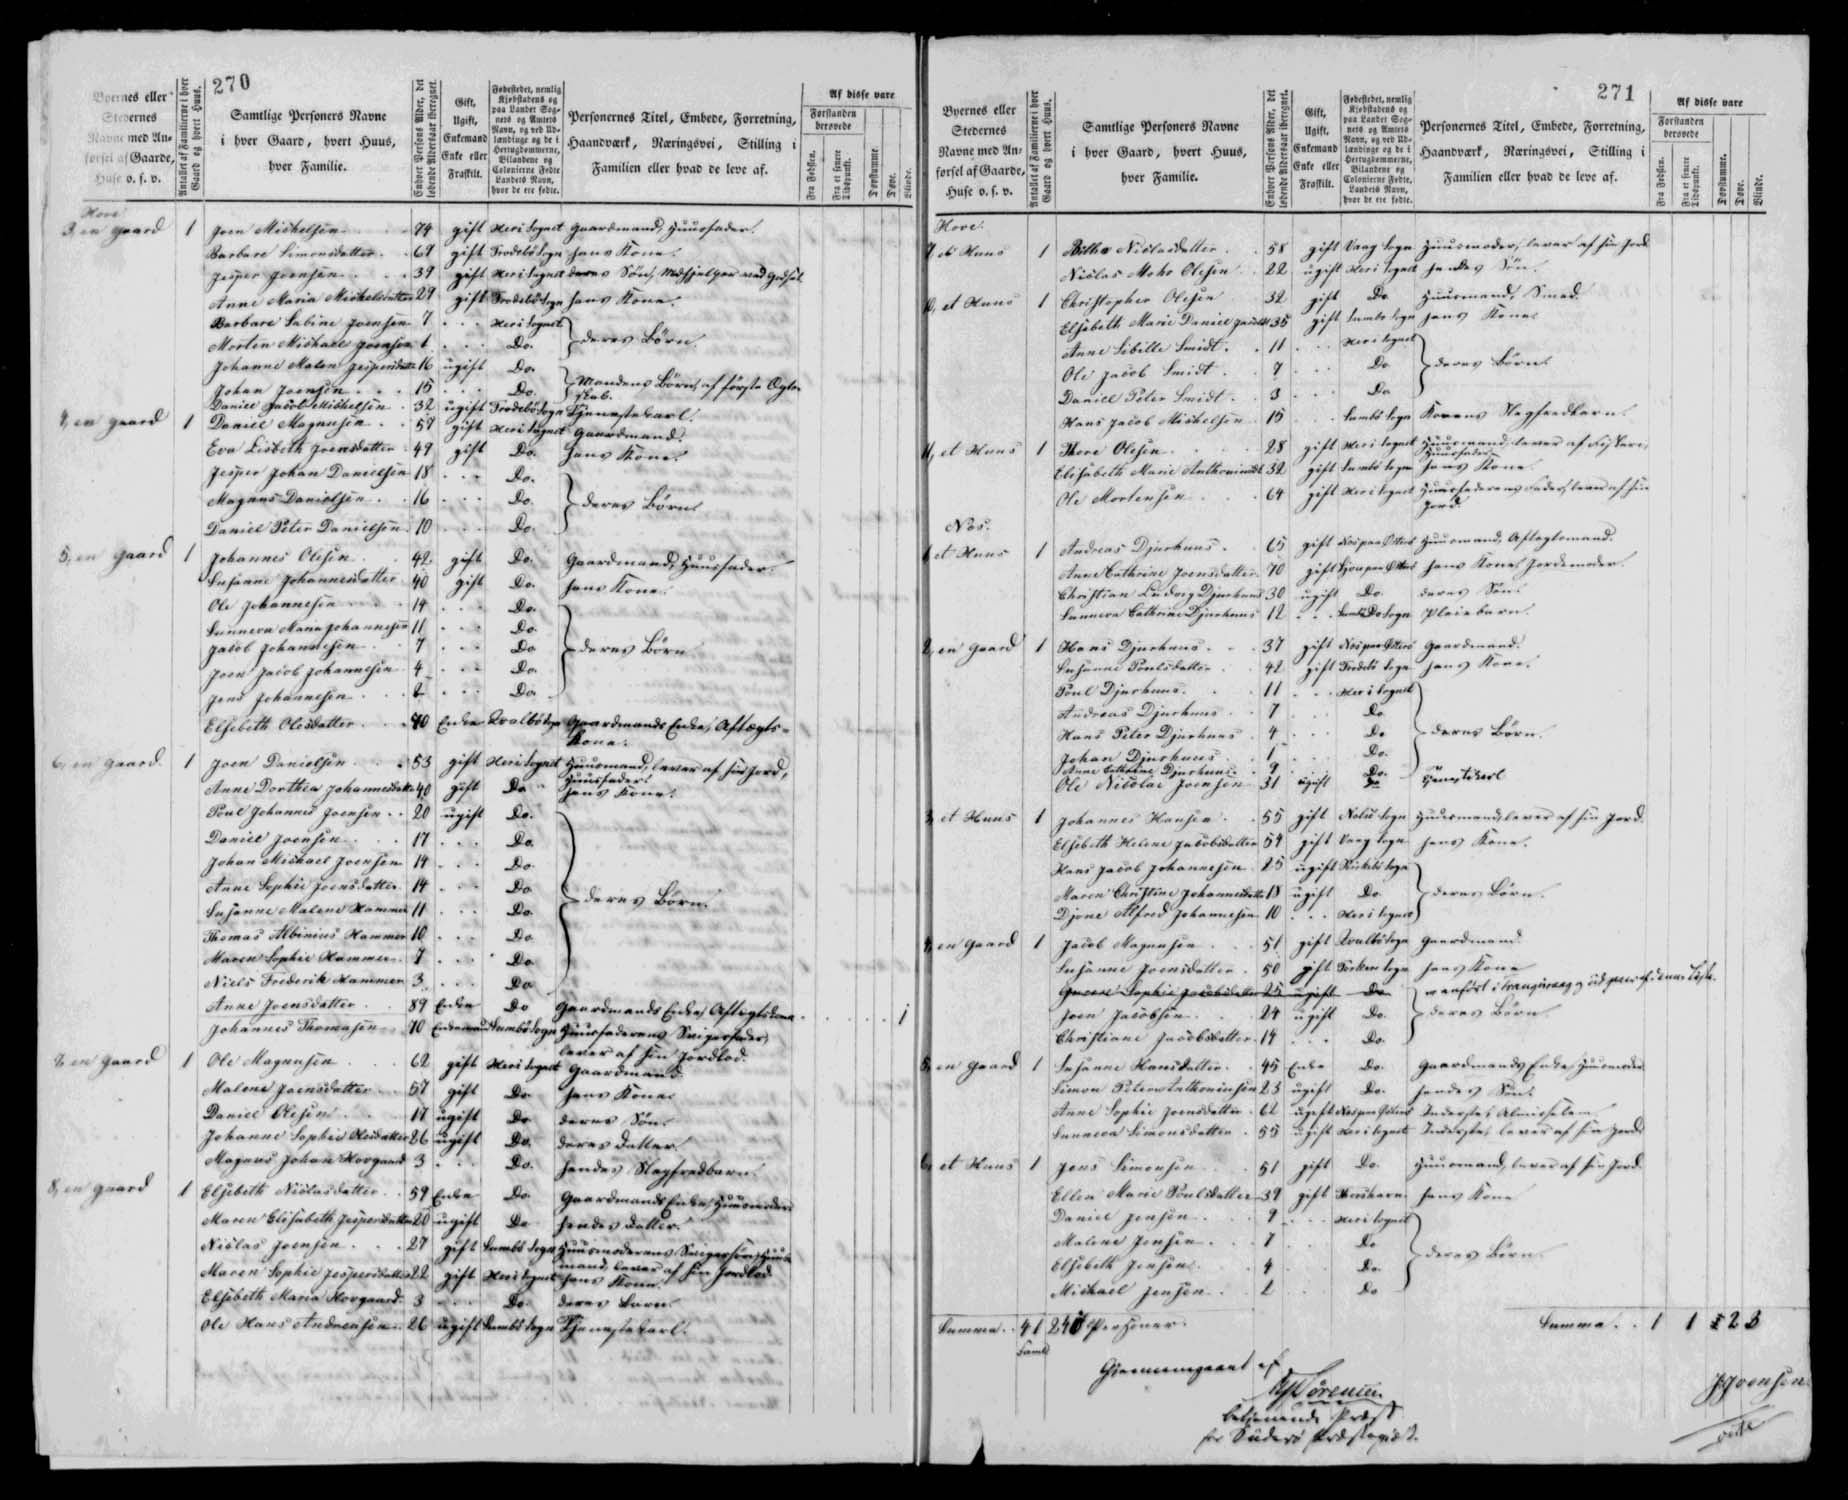 270
Byernes eller Stedernes Navne med Anførsel af Gaarde, Huse o. s. v.
Antallet af Familierne i hver Gaard og hvert Huus.
Samtlige Personers Navne i hver Gaard, hvert Huus, hver Familie.
Enhver Persons Alder, det løbende Alders aar iberegnet.
Gift, Ugift, Enkemand Enke eller Fraskilt.
Fødestedet, nemlig Kjøbstadens og paa Landet Sognets og Amtets Navn, og ved Udlændinge og de i Hertugdømmerne, Bilandene og Colonierne Fødte, Landets Navn, hvor de ere fødte.
Personernes Titel, Embede, Forretning, Haandværk, Næringsvei, Stilling i Familien eller hvad de leve af.
Af disse vare
Forstanden berøvede
Fra Fødselen.
Fra et senere Tidspunkt.
Døvstumme.
Døve.
Blinde.
Hove
3, en gaard 1 Joen Mikkelsen 74 gift Heri Sognet Gaardmand, Huusfader.
Barbare Simonsdatter 69 gift Frodebö Sogn hans Kone.
Jesper Joensen 39 gift Heri Sognet deres Sön, Medhjelper ved Godset
Anne Maria Mickelsdatter 29 gift Frodebö Sogn hans Kone.
Barbare Sabine Joensen 7 Heri Sognet
Morten Michael Joensen 1 Do. deres Börn.
Johanne Malen Jespersdatter 16 ugift Do.
Johan Joensen 15 Do. Mandens Börn, af förste Ægteskab.
Daniel Jacob Mikkelsen 32 ugift Frodebö Sogn Tjenestekarl.
4, en gaard 1 Daniel Magnusen 57 gift Heri Sognet Gaardmand.
Eva Lisbeth Joensdatter 49 gift Do. hans Kone.
Jesper Johan Danielsen 18 Do.
Magnus Danielsen 16 Do. deres Börn.
Daniel Peter Danielsen 10 Do.
5, en gaard 1 Johannes Olesen 42 gift Do. Gaardmand, Huusfader.
Susanne Johannesdatter 40 gift Do. hans Kone.
Ole Johannesen 14 Do.
Sunneva Maria Johannesen 11 Do.
Jacob Johannesen 7 Do deres Börn
Joen Jacob Johannesen 4 Do.
Jens Johannesen 2 Do.
Elsebeth Olesdatter 70 Enke Qvalbö Sogn Gaardmands Enke, Aftægtskone.
6, en gaard. 1 Joen Danielsen 53 gift Heri Sognet Huusmand, lever af sin Jord, Huusfader.
Anne Dorthea Johannesdatter 40 gift Do hans Kone.
Poul Johannes Joensen 20 ugift Do.
Daniel Joensen 17 Do.
Johan Michael Joensen 14 Do.
Anne Sophie Joensdatter 14 Do
Susanne Malene Hammer 11 Do. deres Börn.
Thomas Albinius Hammer 10 Do.
Maren Sophie Hammer 7 Do.
Niels Frederik Hammer 3 Do
Anne Joensdatter 89 Enke Do Gaardmands Enke, Aftægtskone 1
Johannes Thomasen 70 Enkemand Sumbö Sogn Huusfaderens Svigerfader, lever af sin Jordlod.
7, en gaard 1 Ole Magnusen 62 gift Heri Sognet Gaardmand
Malene Joensdatter 57 gift Do. hans Kone
Daniel Olesen 17 ugift Do deres Sön.
Johanne Sophie Olesdatter 26 ugift Do. deres Datter.
Magnus Johan Hovgaard 3 Do. hendes Slegfredbarn.
8, en gaard 1 Elsebeth Niclasdatter 59 Enke Do Gaardmands Enke, Huusmoder
Maren Elisabeth Jespersdatter 20 ugift Do hendes Datter.
Niclas Joensen 27 gift Sumbö Sogn Huusmoderens Svigersön, Huusmand, lever af sin Jordlod
Maren Sophie Jespersdatter 22 gift Heri Sognet hans Kone.
Elsebeth Maria Hovgaard 3 Do. deres Barn.
Ole Hans Andreasen 26 ugift Sumbö Sogn Tjenestekarl.
271
Byernes eller Stedernes Navne med Anførsel af Gaarde, Huse o. s. v.
Antallet af Familierne i hver Gaard og hvert Huus.
Samtlige Personers Navne i hver Gaard, hvert Huus, hver Familie.
Enhver Persons Alder, det løbende Alders aar iberegnet.
Gift, Ugift, Enkemand Enke eller Fraskilt.
Fødestedet, nemlig Kjøbstadens og paa Landet Sognets og Amtets Navn, og ved Udlændinge og de i Hertugdømmerne, Bilandene og Colonierne Fødte, Landets Navn, hvor de ere fødte.
Personernes Titel, Embede, Forretning, Haandværk, Næringsvei, Stilling i Familien eller hvad de leve af.
Af disse vare
Forstanden berøvede
Fra Fødselen.
Fra et senere Tidspunkt.
Døvstumme.
Døve.
Blinde.
Hove.
9, et Huus 1 Billa Niclasdatter 58 gift Vaag Sogn Huusmoder, lever af sin Jord
Niclas Mohr Olesen 22 ugift Heri Sognet hendes Sön.
10, et Huus 1 Christopher Olesen 32 gift Do Huusmand, Smed.
Elsebeth Marie Daniel Jacobs 35 gift Sumbö Sogn hans Kone
Anne Sibille Smidt 11 Heri Sognet
Ole Jacob Smidt 7 Do deres Börn.
Daniel Peter Smidt 3 Do
Hans Jacob Mikkelsen 15 Sumbö Sogn Konens Slegfredbarn.
11, et Huus 1 Thore Olesen 28 gift Heri Sognet Huusmand, lever af Fiskeri, Huusfader
Elisabeth Marie Anthonisdatter 32 gift Sumbö Sogn hans Kone
Ole Mortensen 64 gift Heri Sognet Huusfaderens Fader, lever af sin Jord.
Næs.
1 et Huus 1 Andreas Djurhuus 65 gift Næs paa Österö Huusmand, Aftægtsmand.
Anne Cathrine Joensdatter 70 gift paa Österö hans Kone, Jordemoder.
Christian Ludvig Djurhuus 30 ugift Do. deres Sön.
Sunneva Cathrine Djurhuus 12 Sogn Pleiebarn.
2, en gaard 1 Hans Djurhuus 37 gift Næs paa Österö Gaardmand.
Susanne Poulsdatter 42 gift Frodebö Sogn hans Kone.
Poul Djurhuus 11 Heri Sognet
Andreas Djurhuus 7 Do
Hans Peter Djurhuus 4 Do deres Börn.
Johan Djurhuus 1 Do.
Anne Cathrine Djurhuus 9 Do.
Ole Nicolai Joensen 31 ugift Do Tjenestekarl
3, et Huus 1 Johannes Hansen 55 gift Nolsö Sogn Huusmand, lever af sin Jord.
Elsebeth Helene Jacobsdatter 54 gift Vaag Sogn hans Kone.
Hans Jacob Johannesen 25 ugift Sogn
Maren Christine Johannesdatter 18 ugift Do. deres Börn.
Djone Alfred Johannesen 10 Heri Sognet
4, en gaard 1 Jacob Magnusen 51 gift Qvalbö Sogn Gaardmand
Susanne Joensdatter 50 gift Porkere Sogn hans Kone
Sophie Jacobsdatter 25 ugift Do er anfört i og udgaar af denne Liste.
Joen Jacobsen 24 ugift Do. deres Börn
Christiane Jacobsdatter 14 Do.
5, en gaard 1 Susanne Hansdatter 45 Enke Do. Gaardmands Enke, Huusmoder
Simon Peter Anthoniusen 23 ugift Do. hendes Sön.
Anne Sophie Joensdatter 62 ugift Næs paa Österö Inderste, Almisselem.
Sunneva Simonsdatter 55 ugift Heri Sognet Inderste, lever af sin Jord
6, et Huus 1 Jens Simonsen 51 gift Do. Huusmand, lever af sin Jord.
Ellen Marie Poulsdatter 39 gift hans Kone
Daniel Jensen 9 Heri Sognet
Malene Jensen 7 Do
Elsebeth Jensen 4 Do. deres Börn
Michael Jensen 2 Do
Summa 41 Personer.
Summa 1 1 2 3
Gjennemgaaet af
Sörensen
betjenende Præst
for Suderö Præstegjeld.
JJoensen